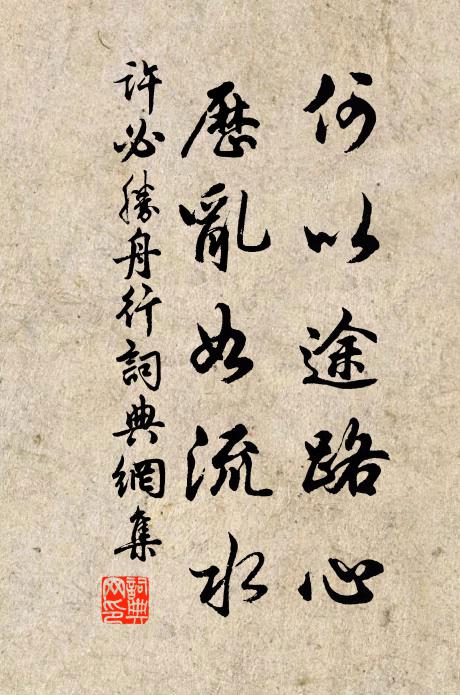 何以途路心
歷亂如流水
許必勝舟行詞典網集
詞典
网印